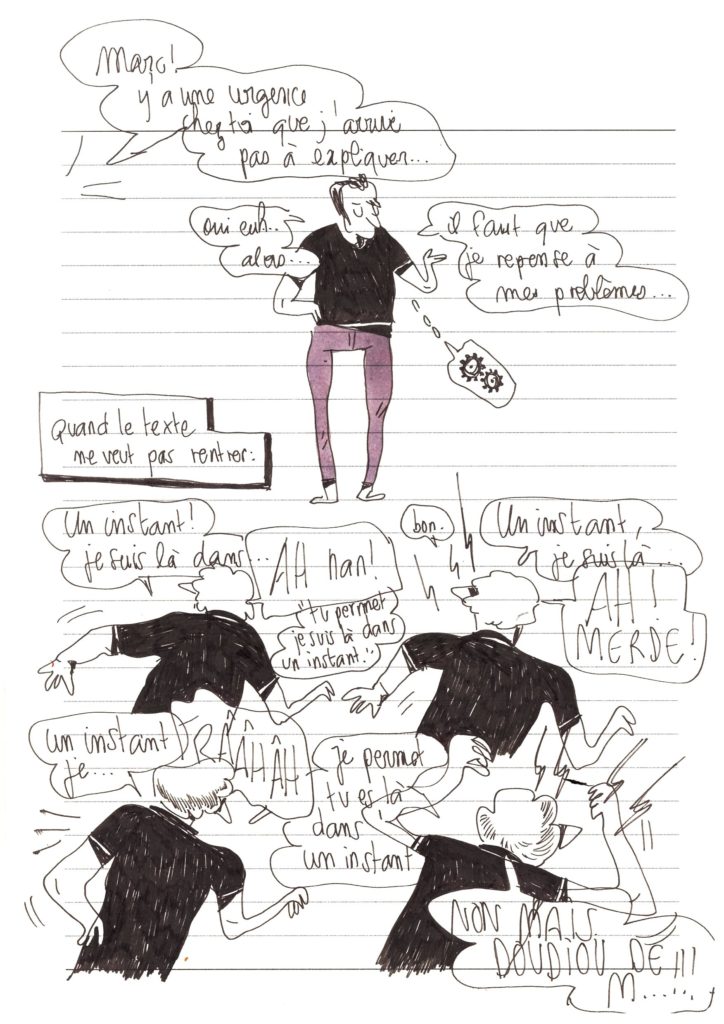 Marc!
y'a une urgence
chez toi que j'arrive
pas à expliquer...
oui euh..
alors...
il faut que
je repense à
mes problèmes...
Quand le texte
ne veut pas rentrer:
Un instant!
je suis là dans...
AH nan!
"tu permet
je suis là dans
un instant."
bon.
Un instant,
je suis là...
AH!
MERDE!
un instant
je...
RÂÂHÂH
je permet
tu es là
dans
un instant
NON MAIS
DOUDIOU DE !!!
M......